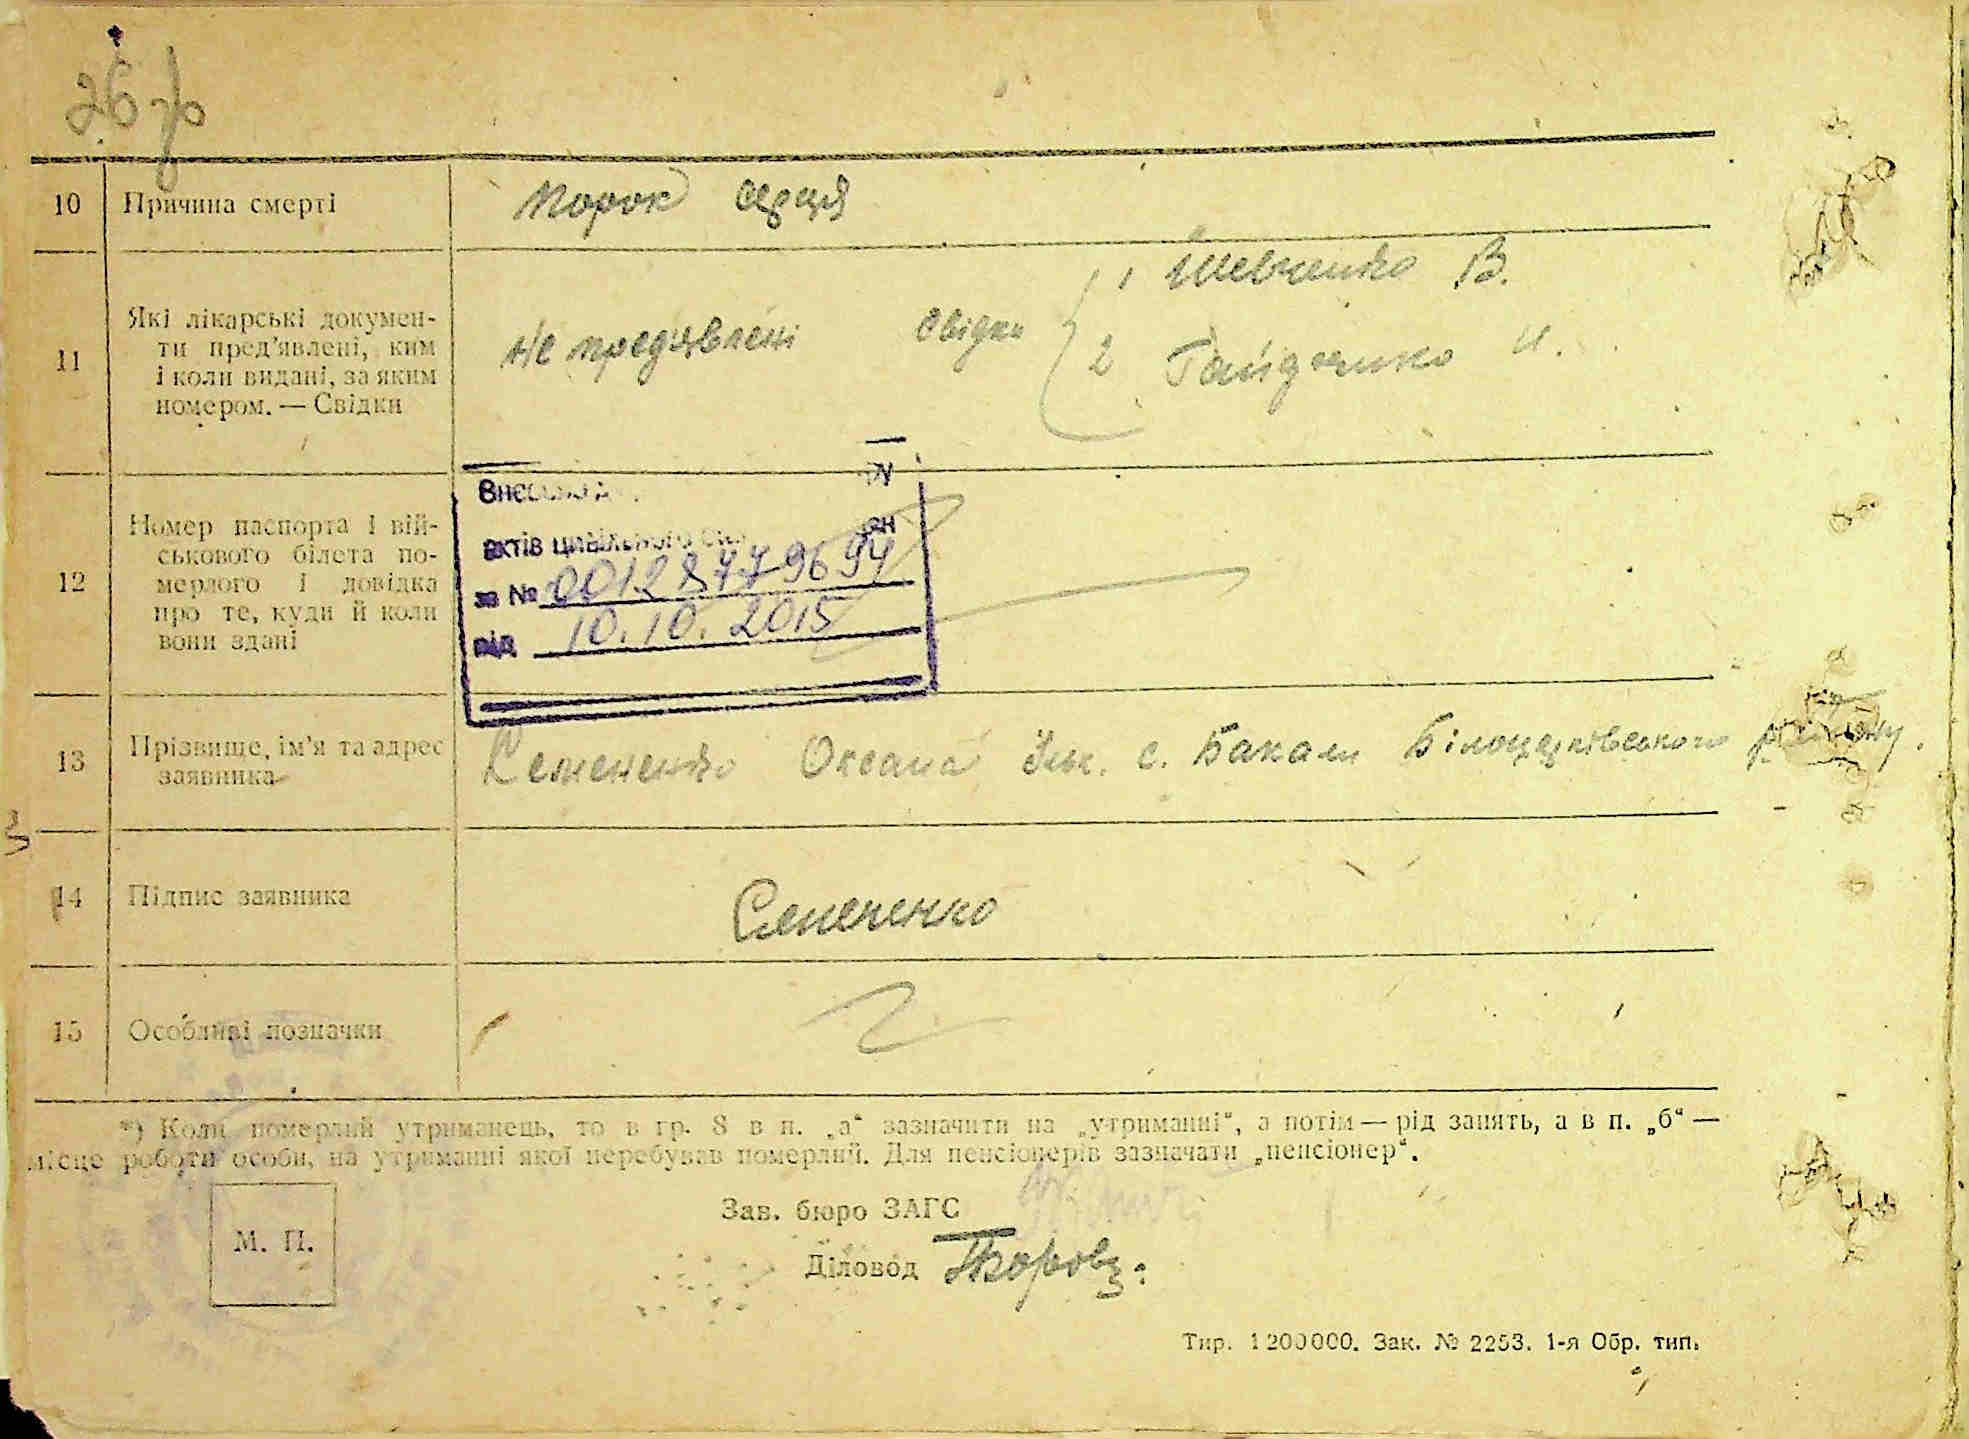 26 р
10 Причина смерті порок серця
11 Які лікарські докумен-
ти пред'явлені, ким
і коли видані, за яким
номером. — Свідки
не предявлені свідки 1 Шевченко В.
2 Гайденко И.
12 Номер паспорта і вій-
ськового білета по-
мерлого і довідка
про те, куди й коли
вони здані
актів цивільного
за № 00128779694
від 10.10.2015
13 Прізвище, ім'я та адрес
заявника
Семененко Оксана с. Бакали Білоцерківського району.
14 Підпис заявника Семененко
15 Особливі позначки
*) Коли померлий утриманець, то в гр. 8 в п. „а“ зазначити на „утриманні“, а потім — рід занять, а в п. „б“ —
місце роботи особи, на утриманні якої перебував померлий. Для пенсіонерів зазначати „пенсіонер“.
М. П.
Зав. бюро ЗАГС
Діловод
Тир. 1200000. Зак. № 2253. 1-я Обр. тип.